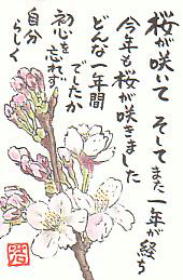 桜が咲いて そして また 一年が経ち
今年も桜が咲きました
どんな一年間
でしたか
初心を忘れず
自分
らしく